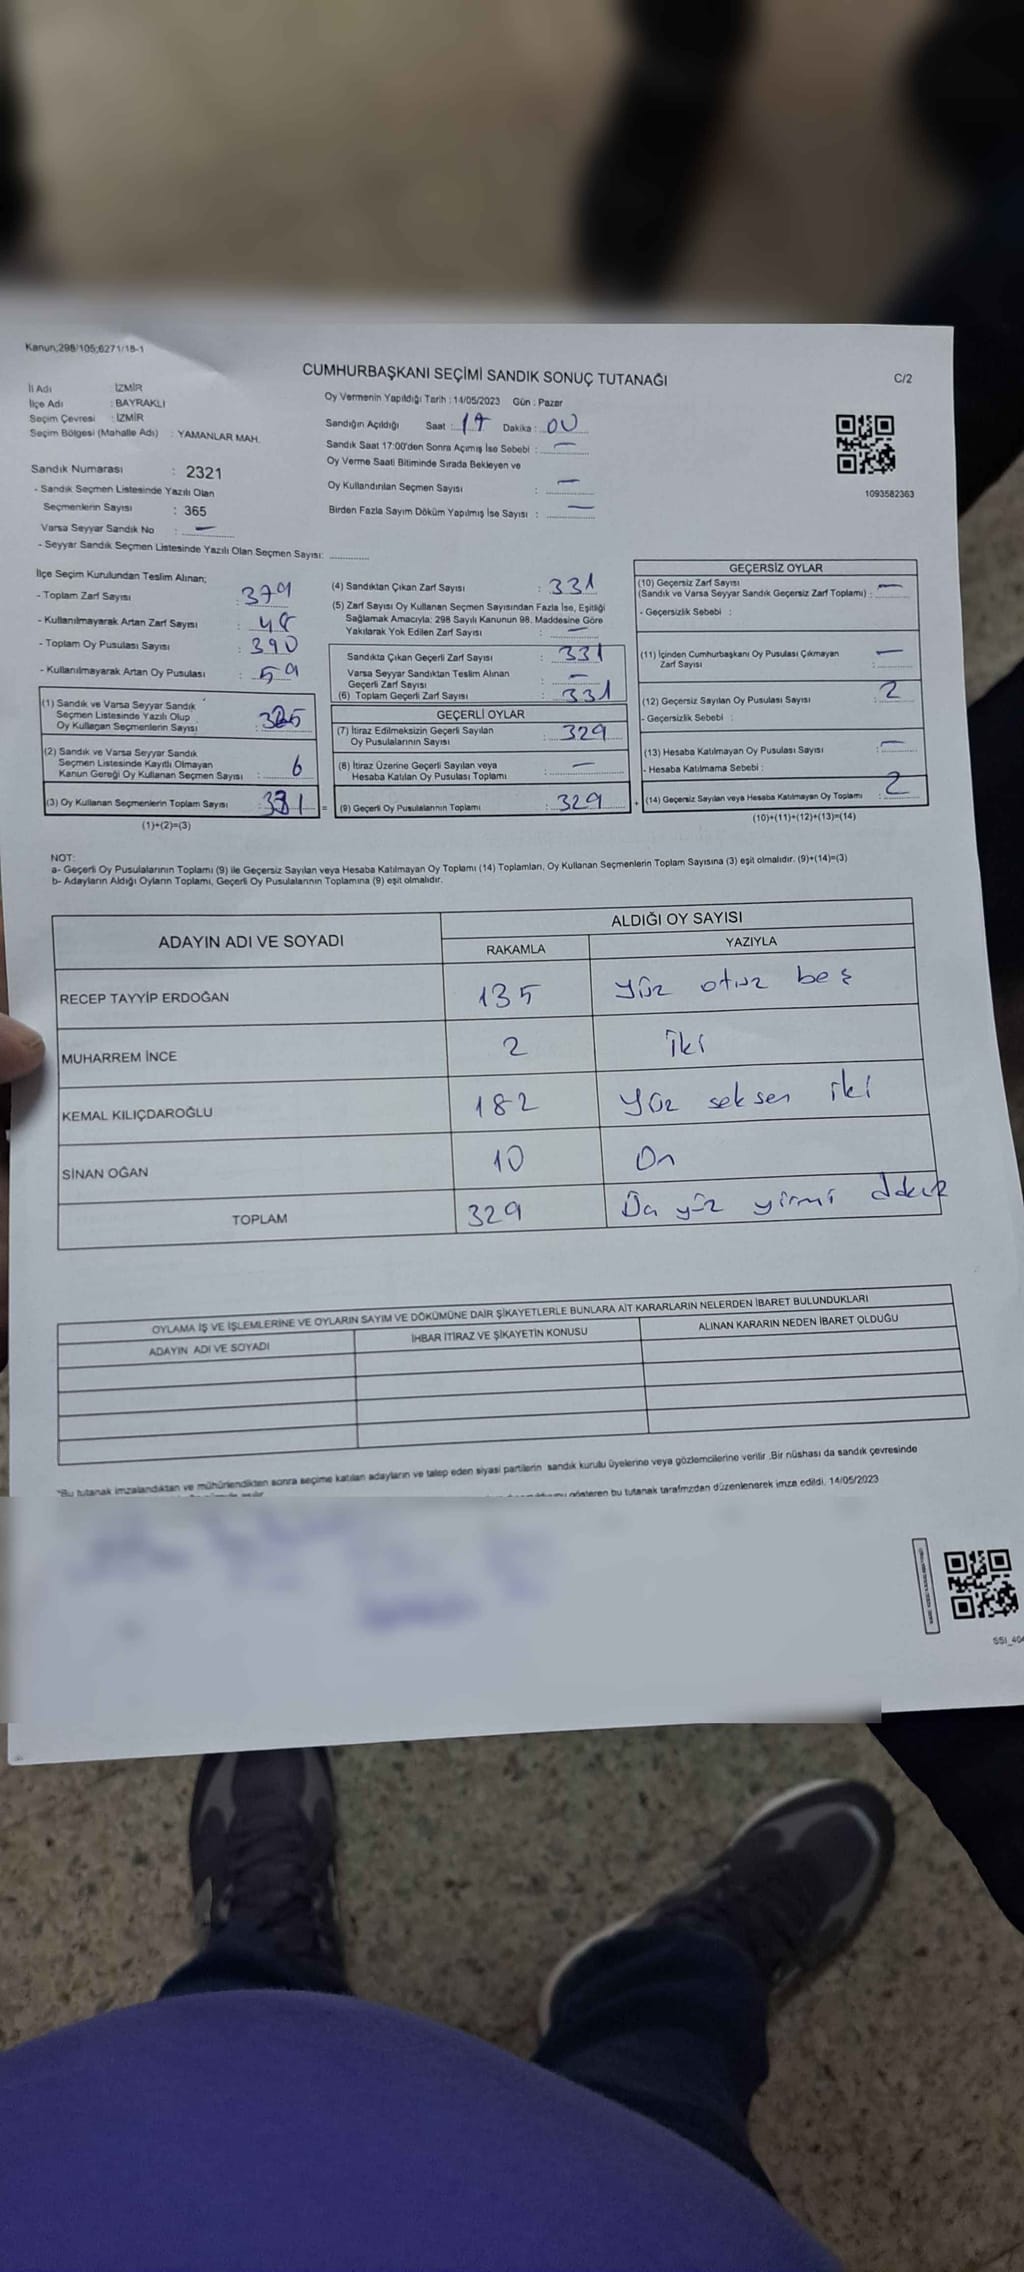 Kanun;298/105;6271/18-1
CUMHURBAŞKANI SEÇİMİ SANDIK SONUÇ TUTANAĞI
C/2
İl Adı : İZMİR
İlçe Adı : BAYRAKLI
Seçim Çevresi : İZMİR
Seçim Bölgesi (Mahalle Adı) : YAMANLAR MAH.
Sandık Numarası : 2321
- Sandık Seçmen Listesinde Yazılı Olan
Seçmenlerin Sayısı : 365
Varsa Seyyar Sandık No : —
- Seyyar Sandık Seçmen Listesinde Yazılı Olan Seçmen Sayısı:
Oy Vermenin Yapıldığı Tarih : 14/05/2023 Gün : Pazar
Sandığın Açıldığı Saat : 17 Dakika : 00
Sandık Saat 17:00'den Sonra Açımış İse Sebebi : —
Oy Verme Saati Bitiminde Sırada Bekleyen ve
Oy Kullandırılan Seçmen Sayısı : —
Birden Fazla Sayım Döküm Yapılmış İse Sayısı : —
1093582363
İlçe Seçim Kurulundan Teslim Alınan;
- Toplam Zarf Sayısı : 379
- Kullanılmayarak Artan Zarf Sayısı : 48
- Toplam Oy Pusulası Sayısı : 390
- Kullanılmayarak Artan Oy Pusulası : 59
(1) Sandık ve Varsa Seyyar Sandık
Seçmen Listesinde Yazılı Olup
Oy Kullanan Seçmenlerin Sayısı : 325
(2) Sandık ve Varsa Seyyar Sandık
Seçmen Listesinde Kayıtlı Olmayan
Kanun Gereği Oy Kullanan Seçmen Sayısı : 6
(3) Oy Kullanan Seçmenlerin Toplam Sayısı : 331 =
(1)+(2)=(3)
(4) Sandıktan Çıkan Zarf Sayısı : 331
(5) Zarf Sayısı Oy Kullanan Seçmen Sayısından Fazla İse, Eşitliği
Sağlamak Amacıyla; 298 Sayılı Kanunun 98. Maddesine Göre
Yakılarak Yok Edilen Zarf Sayısı : —
Sandıkta Çıkan Geçerli Zarf Sayısı : 331
Varsa Seyyar Sandıktan Teslim Alınan
Geçerli Zarf Sayısı : —
(6) Toplam Geçerli Zarf Sayısı : 331
GEÇERLİ OYLAR
(7) İtiraz Edilmeksizin Geçerli Sayılan
Oy Pusulalarının Sayısı : 329
(8) İtiraz Üzerine Geçerli Sayılan veya
Hesaba Katılan Oy Pusulası Toplamı : —
(9) Geçerli Oy Pusulalarının Toplamı : 329 +
GEÇERSİZ OYLAR
(10) Geçersiz Zarf Sayısı
(Sandık ve Varsa Seyyar Sandık Geçersiz Zarf Toplamı) : —
- Geçersizlik Sebebi :
(11) İçinden Cumhurbaşkanı Oy Pusulası Çıkmayan
Zarf Sayısı : —
(12) Geçersiz Sayılan Oy Pusulası Sayısı : 2
- Geçersizlik Sebebi :
(13) Hesaba Katılmayan Oy Pusulası Sayısı : —
- Hesaba Katılmama Sebebi :
(14) Geçersiz Sayılan veya Hesaba Katılmayan Oy Toplamı : 2
(10)+(11)+(12)+(13)=(14)
NOT:
a- Geçerli Oy Pusulalarının Toplamı (9) ile Geçersiz Sayılan veya Hesaba Katılmayan Oy Toplamı (14) Toplamları, Oy Kullanan Seçmenlerin Toplam Sayısına (3) eşit olmalıdır. (9)+(14)=(3)
b- Adayların Aldığı Oyların Toplamı, Geçerli Oy Pusulalarının Toplamına (9) eşit olmalıdır.
ADAYIN ADI VE SOYADI ALDIĞI OY SAYISI
RAKAMLA YAZIYLA
RECEP TAYYİP ERDOĞAN 135 Yüz otuz beş
MUHARREM İNCE 2 İki
KEMAL KILIÇDAROĞLU 182 Yüz seksen iki
SİNAN OĞAN 10 On
TOPLAM 329 yüz yirmi
OYLAMA İŞ VE İŞLEMLERİNE VE OYLARIN SAYIM VE DÖKÜMÜNE DAİR ŞİKAYETLERLE BUNLARA AİT KARARLARIN NELERDEN İBARET BULUNDUKLARI
ADAYIN ADI VE SOYADI İHBAR İTİRAZ VE ŞİKAYETİN KONUSU ALINAN KARARIN NEDEN İBARET OLDUĞU
*Bu tutanak imzalandıktan ve mühürlendikten sonra seçime katılan adayların ve talep eden siyasi partilerin sandık kurulu üyelerine veya gözlemcilerine verilir .Bir nüshası da sandık çevresinde
gösteren bu tutanak tarafımızdan düzenlenerek imza edildi. 14/05/2023